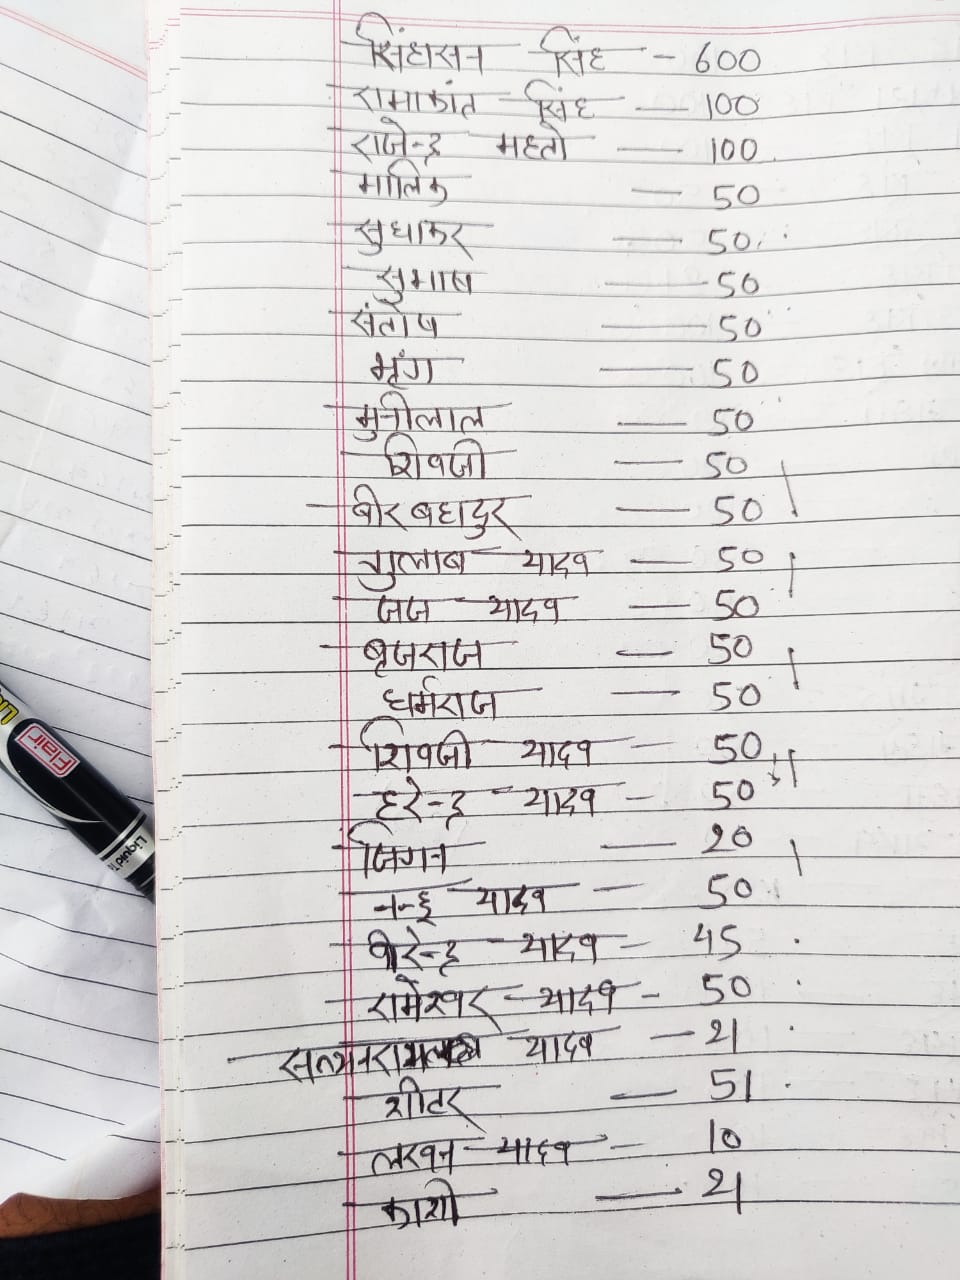 सिंहासन सिंह - 600
रामाकांत सिंह - 100
राजेन्द्र महतो - 100
मालिक - 50
सुधाकर - 50
सुभाष - 50
संतोष - 50
भृंग - 50
मुनीलाल - 50
शिवजी - 50
वीर बहादुर - 50
गुलाब यादव - 50
जज यादव - 50
बृजराज - 50
धर्मराज - 50
शिवजी यादव - 50
हरेन्द्र यादव - 50
जिगन - 20
नन्हू यादव - 50
वीरेन्द्र यादव - 45
रामेश्वर यादव - 50
यादव - 21
शीतर - 51
लखन यादव - 10
काशी - 21
Flair
Liquid